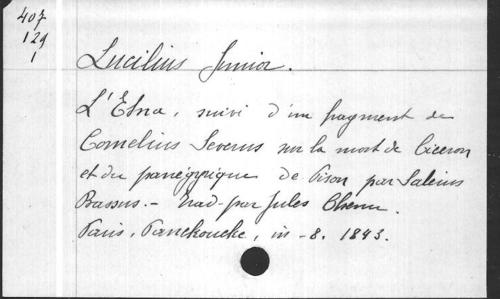 407
129
1
Lucilius Junior.
L'Etna, suivi d'un fragment de
Cornelius Severus sur la mort de Ciceron
et du panégyrique de Pison par Saleius
Bassus. - Trad. par Jules Chenu.
Paris, Panckoucke, in-8. 1843.